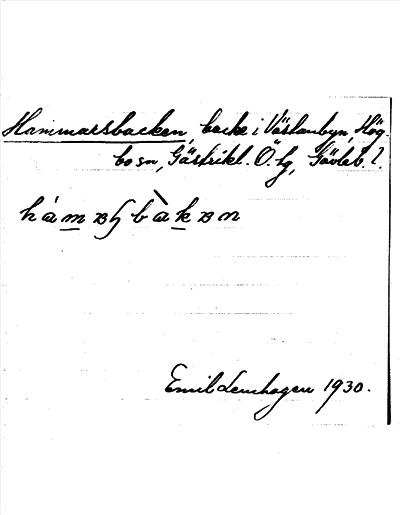 Hammarsbacken, backe i Västanbyn, Hög-
bo sn, Gästrikl. Ö. tg, Gävleb. l.
hámɐꞔbàkɐn
Emil Lenhagen 1930.